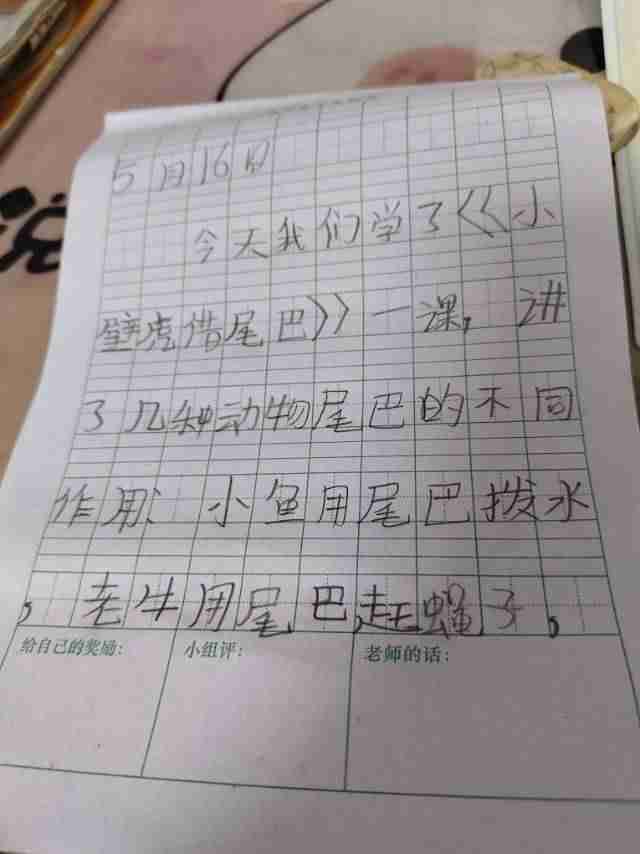 5月16日
今天我们学了《小
壁虎借尾巴》一课，讲
了几种动物尾巴的不同
作用：小鱼用尾巴拨水
，老牛用尾巴赶蝇子，
给自己的奖励： 小组评： 老师的话：